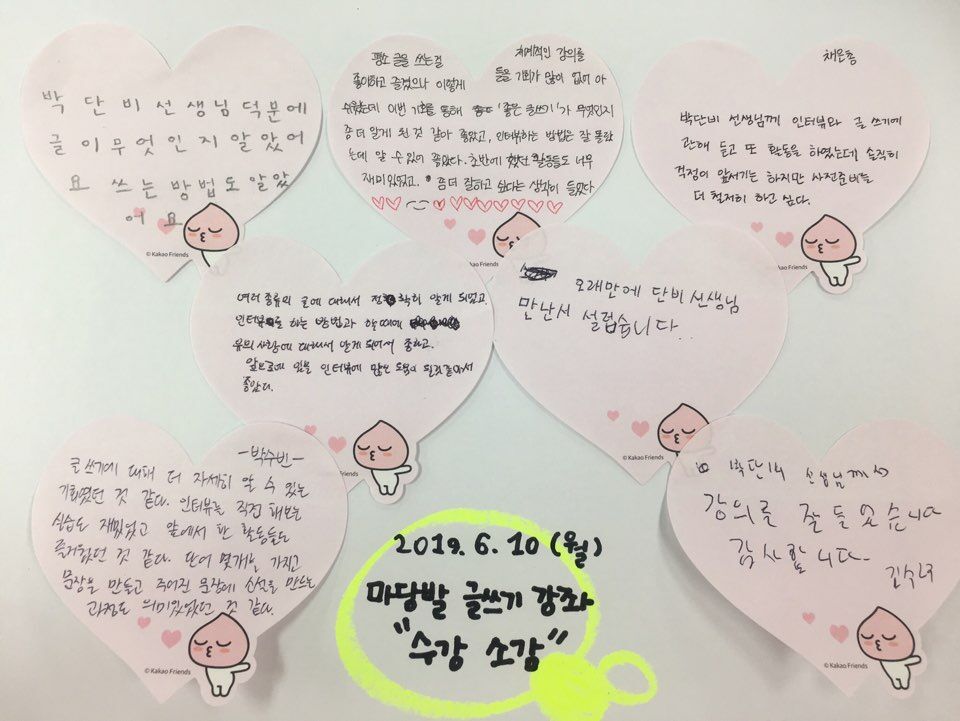 박단비선생님덕분에
글이무엇인지알았어
요 쓰는방법도알았
어요
© Kakao Friends
평소 글을 쓰는걸 체계적인 강의를
좋아하고 즐겼으나 이렇게 들을 기회가 많이 없어 아
쉬웠는데 이번 기회를 통해 '좋은 글쓰기'가 무엇인지
좀 더 알게 된 것 같아 좋았고, 인터뷰하는 방법은 잘 몰랐
는데 알 수 있어 좋았다. 초반에 했던 활동들도 너무
재미있었고. 좀 더 잘하고 싶다는 생각이 들었다
채은종
박단비 선생님께 인터뷰와 글 쓰기에
관해 듣고 또 활동을 하였는데 솔직히
걱정이 앞서기는 하지만 사전준비를
더 철저히 하고 싶다.
© Kakao Friends
여러 종류의 글에 대해서 정확히 알게 되었고,
인터뷰를 하는 방법과 할때에
유의사항에 대해서 알게 되어서 좋았고.
앞으로에 있을 인터뷰에 많은 도움이 될것같아서
좋았다.
오래만에 단비선생님
만난서 설럽습니다.
© Kakao Friends
-박수빈-
글쓰기에 대해 더 자세히 알 수 있는
기회였던 것 같다. 인터뷰를 직접 해보는
실습도 재밌었고 앞에서 한 활동들도
즐거웠던 것 같다. 단어 몇개를 가지고
문장을 만들고 주어진 문장에 소설을 만드는
과정도 의미있었던 것 같다.
© Kakao Friends
2019. 6. 10 (월)
마당발 글쓰기 강좌
"수강 소감"
박단비 선생님께서
강의를 잘 들었습니다
감사합니다.
© Kakao Friends